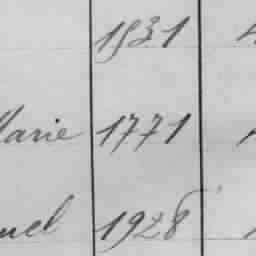 1931
Marie 1771
uel 1928